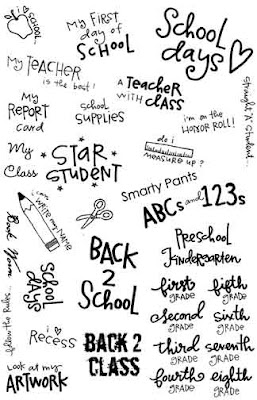 i ♡ SCHOOL
My FIRST
day of
SCHOOL
SCHOOL
days
My TEACHER
is the best!
A TEACHER
WITH CLASS
straight 'A' student...
My
REPORT
card
school
SUPPLIES
i'm on the
HONOR ROLL!!
do i
MEASURE UP?
My
Class
STAR
STUDENT
Smarty Pants
ABCs and 123s
i can
WRITE MY NAME
Book Worm
BACK
2
SCHOOL
Preschool
Kindergarten
SCHOOL
dAYS
first
GRADE
fifth
GRADE
second
GRADE
sixth
GRADE
third
GRADE
seventh
GRADE
fourth
GRADE
eighth
GRADE
follow the Rules...
i ♡
RECESS
BACK 2
CLASS
Look at my
ARTWORK